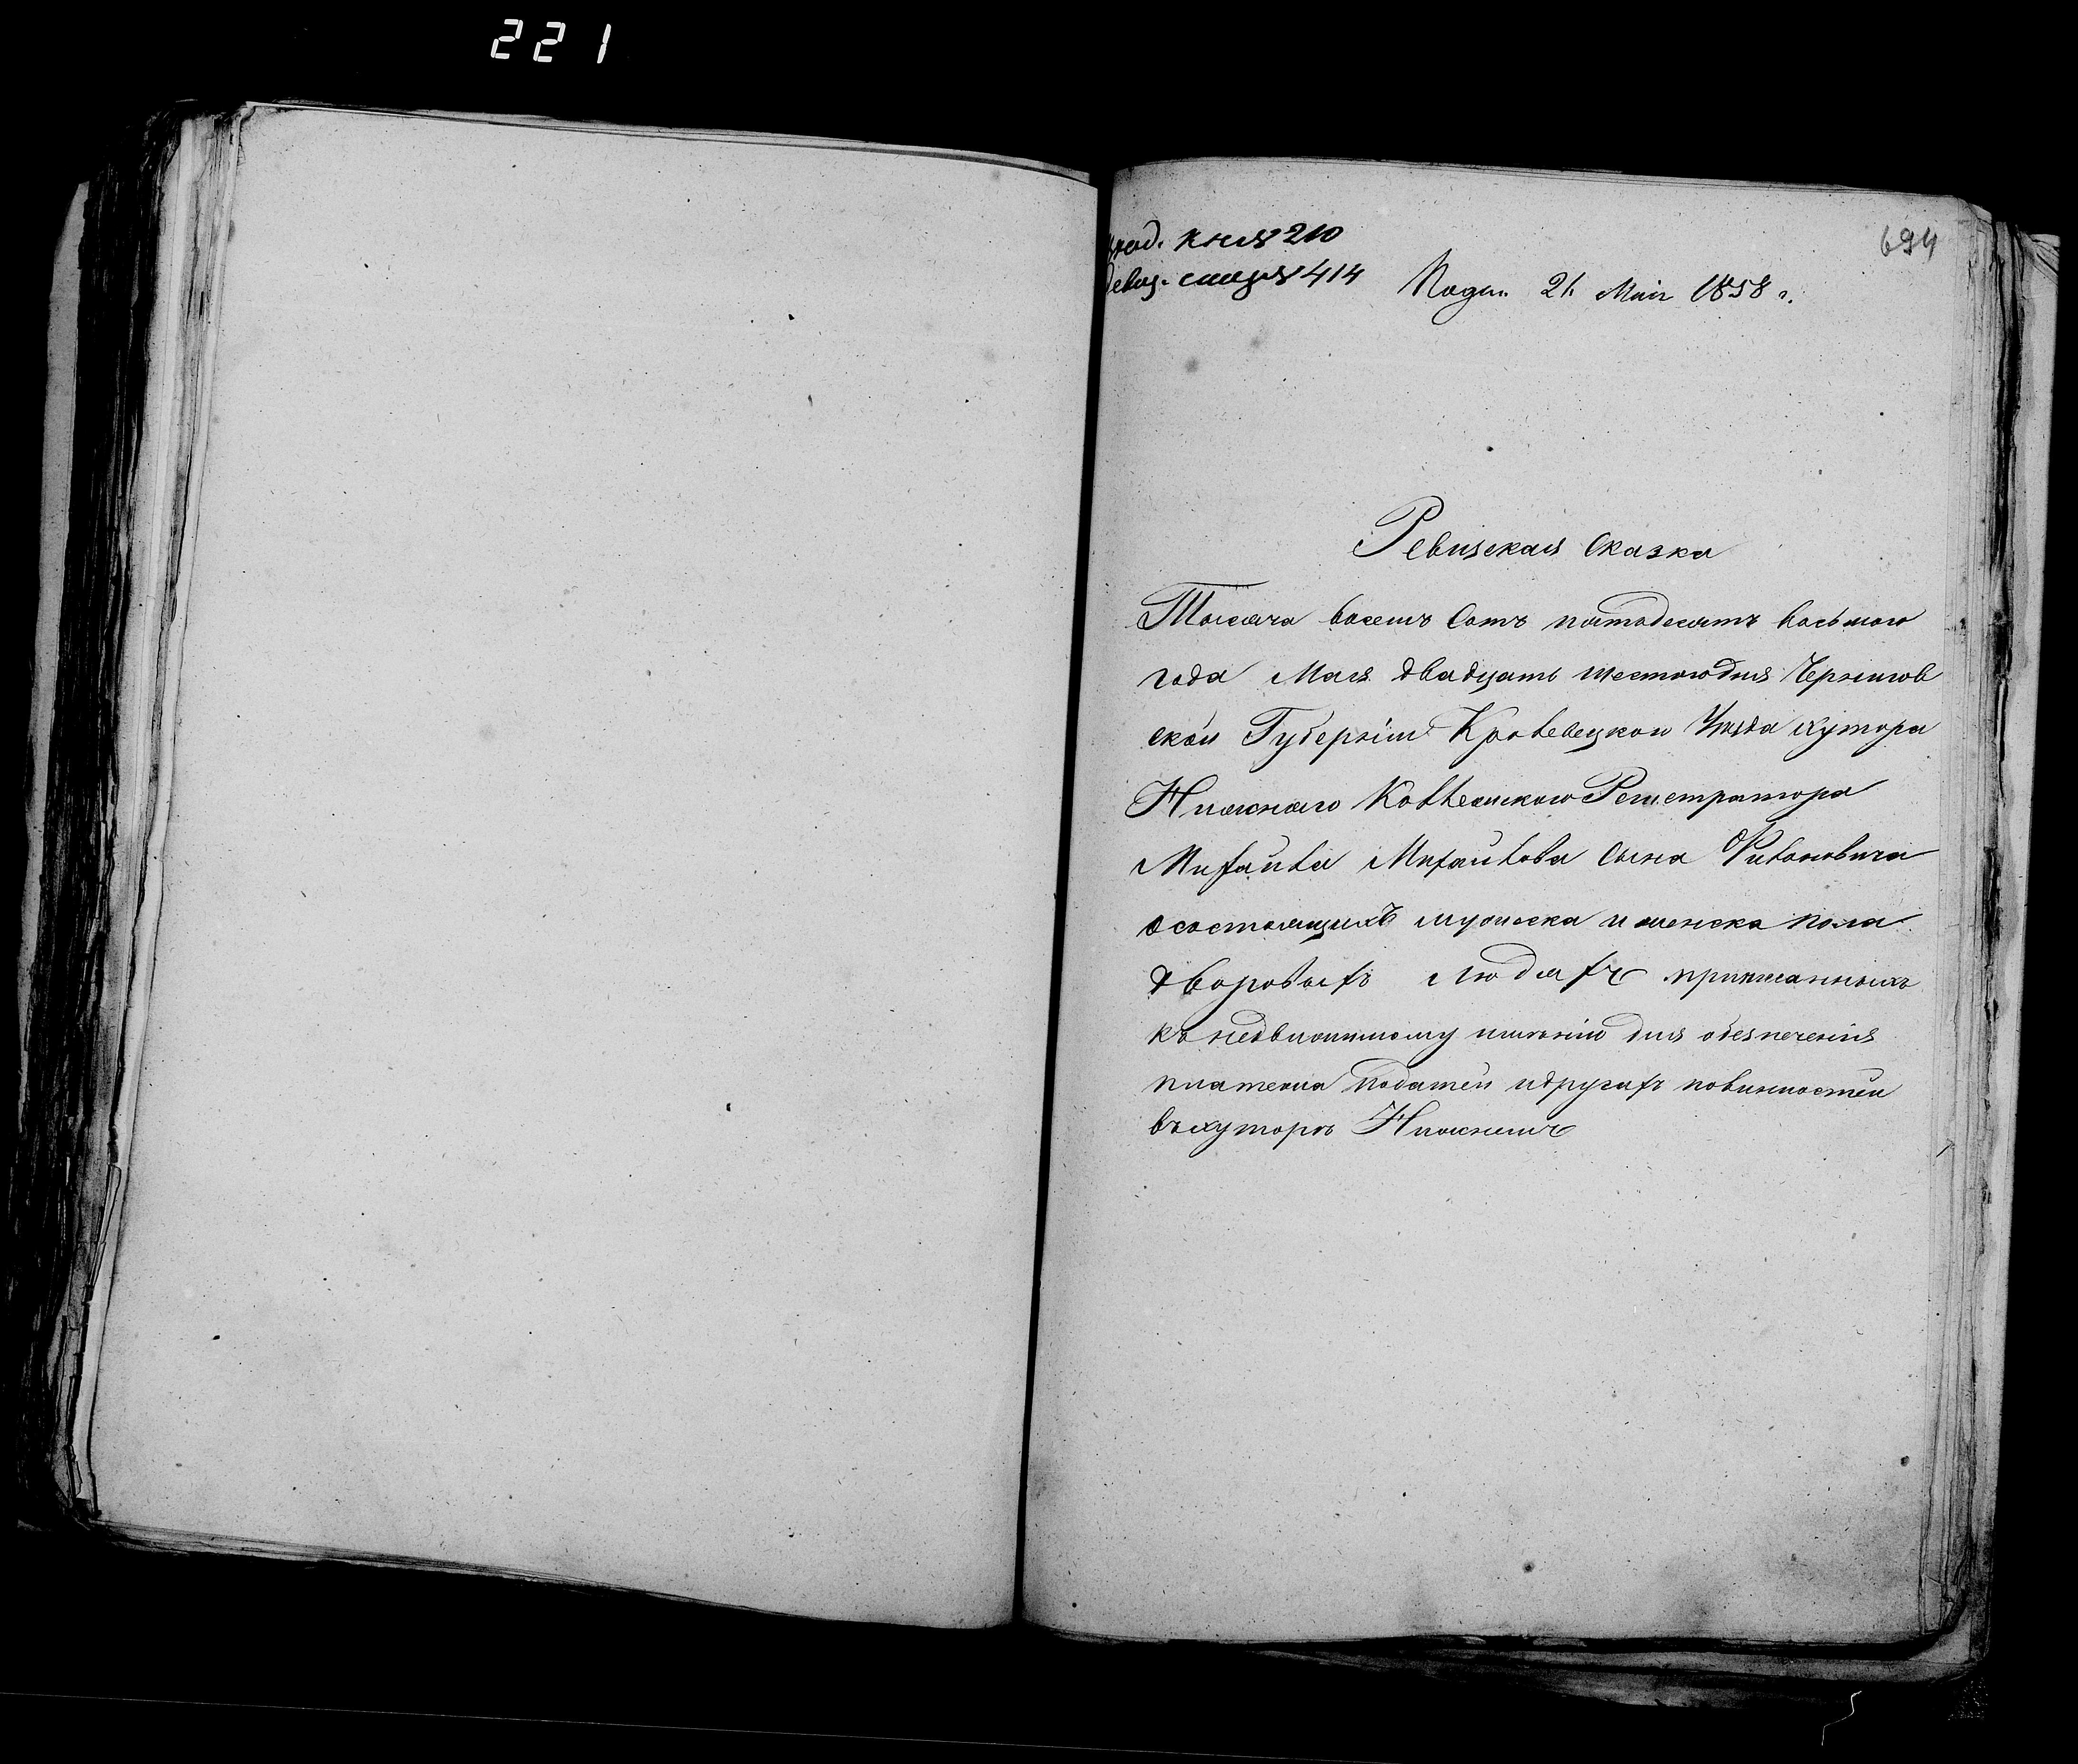 221
694
вход. кн. № 210
ревиз. сказ. № 414
Подан. 21 Маія 1858 г.
Ревизская Сказка
Тысяча восемъ Сотъ пятодесятъ восьмого
года Мая двадцать шестогодня Чернигов
ской Губерніи Кролевецкого Уѣзда хутора
Нижнего Коллежского Регистратора
Михайла Михайлова Сына Филоновича
осостоящихъ мужеска иженска пола
дворовыхъ людяхъ приписанныхъ
къ недвижимому имѣнію для обезпеченія
платежа податей идругихъ повинностей
вхуторѣ Нижнемъ